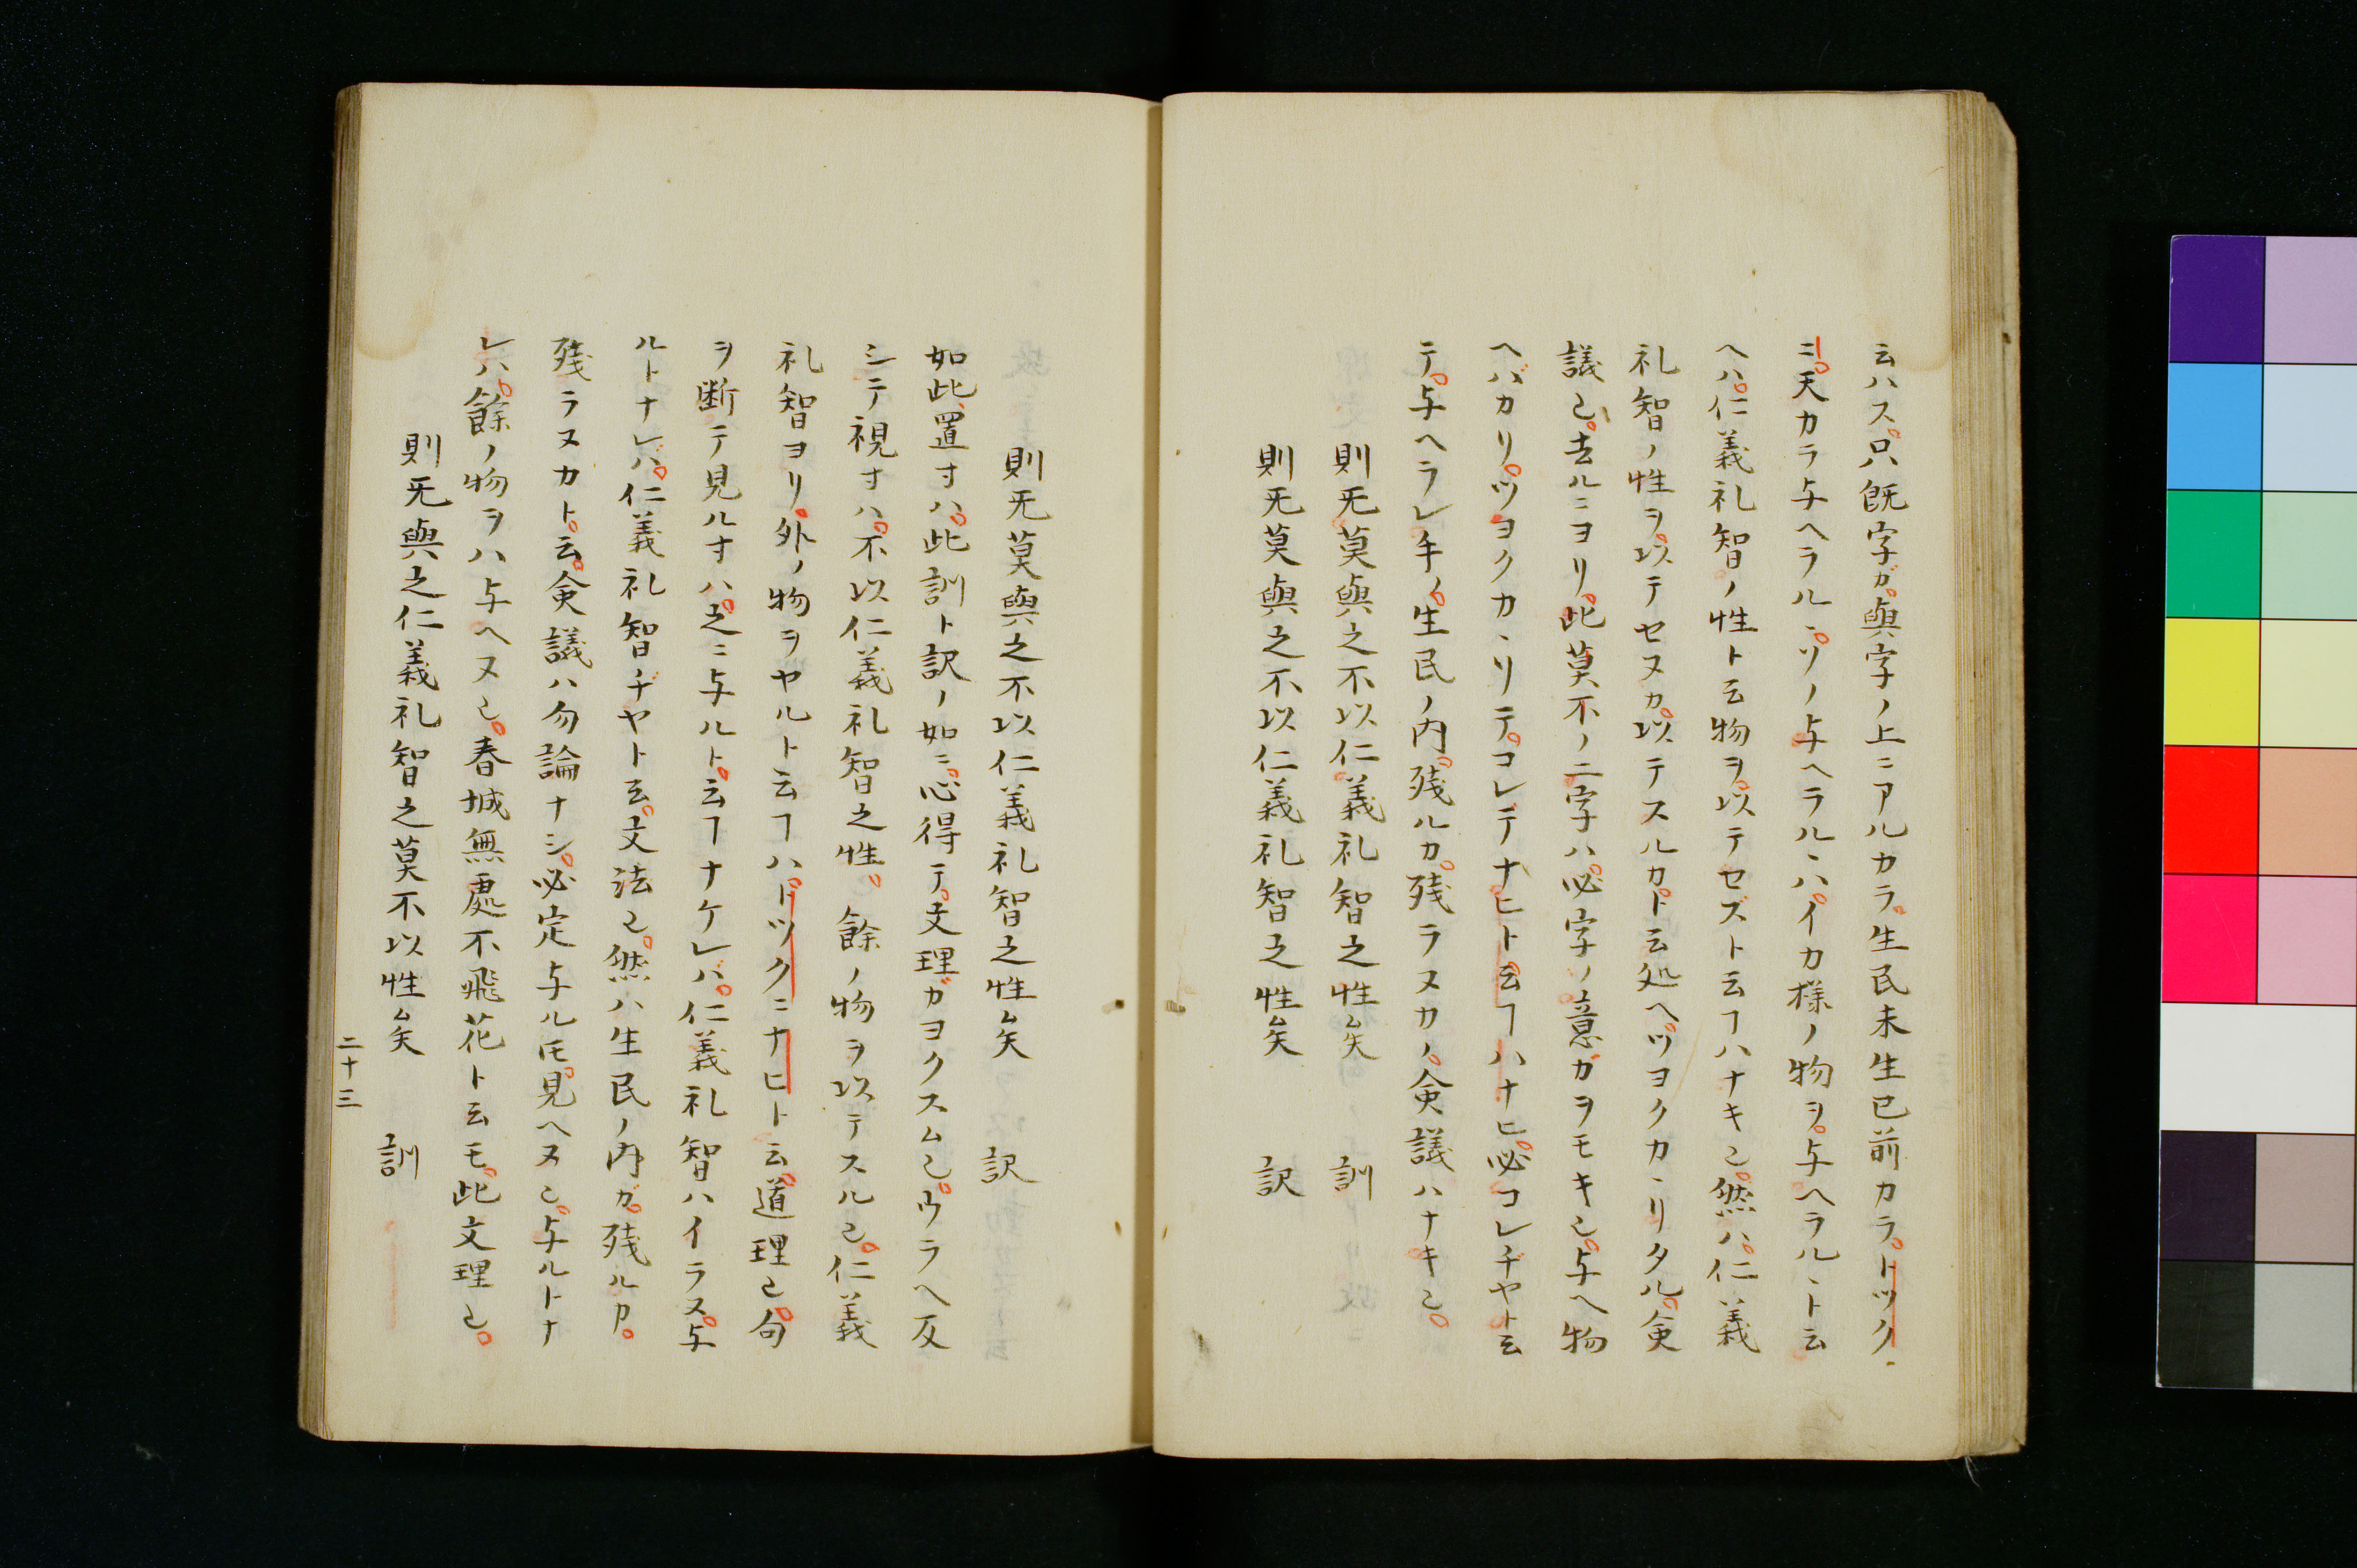 云ハス。只既字ガ。與字ノ上ニアルカラ。生民未生已前カラ。トツク
ニ。天カラ与ヘラルヽ。ソノ与ヘラルヽハ。イカ様ノ物ヲ。与ヘラルヽト云
ヘハ。仁義礼智ノ性ト云物ヲ。以テセズト云ヿハナキ㐧。然ハ。仁義
礼智ノ性ヲ。以テセヌカ。以テスルカ。ト云処ヘ。ツヨクカヽリタル。僉
議也。去ルニヨリ。此莫不ノ二字ハ。必字ノ意ガヲモキ也。与ヘ物
ヘバカリ。ツヨクカヽリテ。コレテナヒト云ヿハナヒ。必コレヂヤト云
テ。与ヘラレ手ノ。生民ノ内。残ルカ。残ラヌカノ。僉議ハナキ也。
則旡莫與之不以仁義礼智之性矣 訓
則旡莫與之不以仁義礼智之性矣 訳
則旡莫與之不以仁義礼智之性矣 訳
如此置寸ハ。此訓ト訳ノ如ニ。心得テ。文理ガヨクスム也。ウラヘ反
シテ視寸ハ。不以仁義礼智之性。餘ノ物ヲ以テスル也。仁義
礼智ヨリ。外ノ物ヲヤルト云ヿハ。トツクニナヒト云。道理也。句
ヲ断テ見ル寸ハ。之ニ与ルト。云ヿナケレバ。仁義礼智ハイラス。与
ルトナレバ。仁義礼智ヂヤト云。文法也。然ハ生民ノ内ガ。残ルカ。
残ラヌカト。云。僉議ハ勿論ナシ。必定与ル𪜈。見ヘヌ也。与ルトナ
レハ。餘ノ物ヲハ与ヘヌ也。春城無處不飛花ト云モ。此文理也。
則旡與之仁義礼智之莫不以性矣 訓
二十三